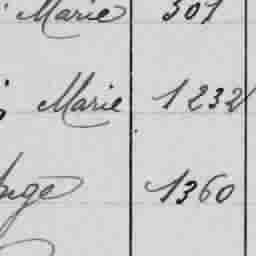 Marie 301
Marie 1232
1360